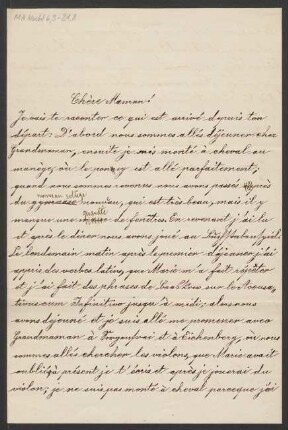 Chère Maman!
Je vais te raconter ce qui est arrivé depuis ton
départ: D'abord nous sommes allés déjeuner chez
Grandmaman, ensuite je suis monté à cheval au
manège, où le poney est allé parfaitement,
quand nous sommes revenus nous avons passés près
du nouveau, qui est très beau, mais il y
manque une de fenêtres. En revenant j'ai lu
et après le dîner nous avons joué au
Le lendemain matin après le premier déjeuner, j'ai
appris des verbes latins, que Marie m'a fait répéter
et j'ai fait des phrases de sur
cum Infinitivo jusqu'à midi; alors nous
avons déjeuné et je suis allé me promener avec
Grandmaman à et à Eichenberg, où nous
sommes allés chercher les violons, que Marie avait
oublié; à présent je t'écris et après je jouerai du
violon; je ne suis pas monté à cheval parceque j'ai